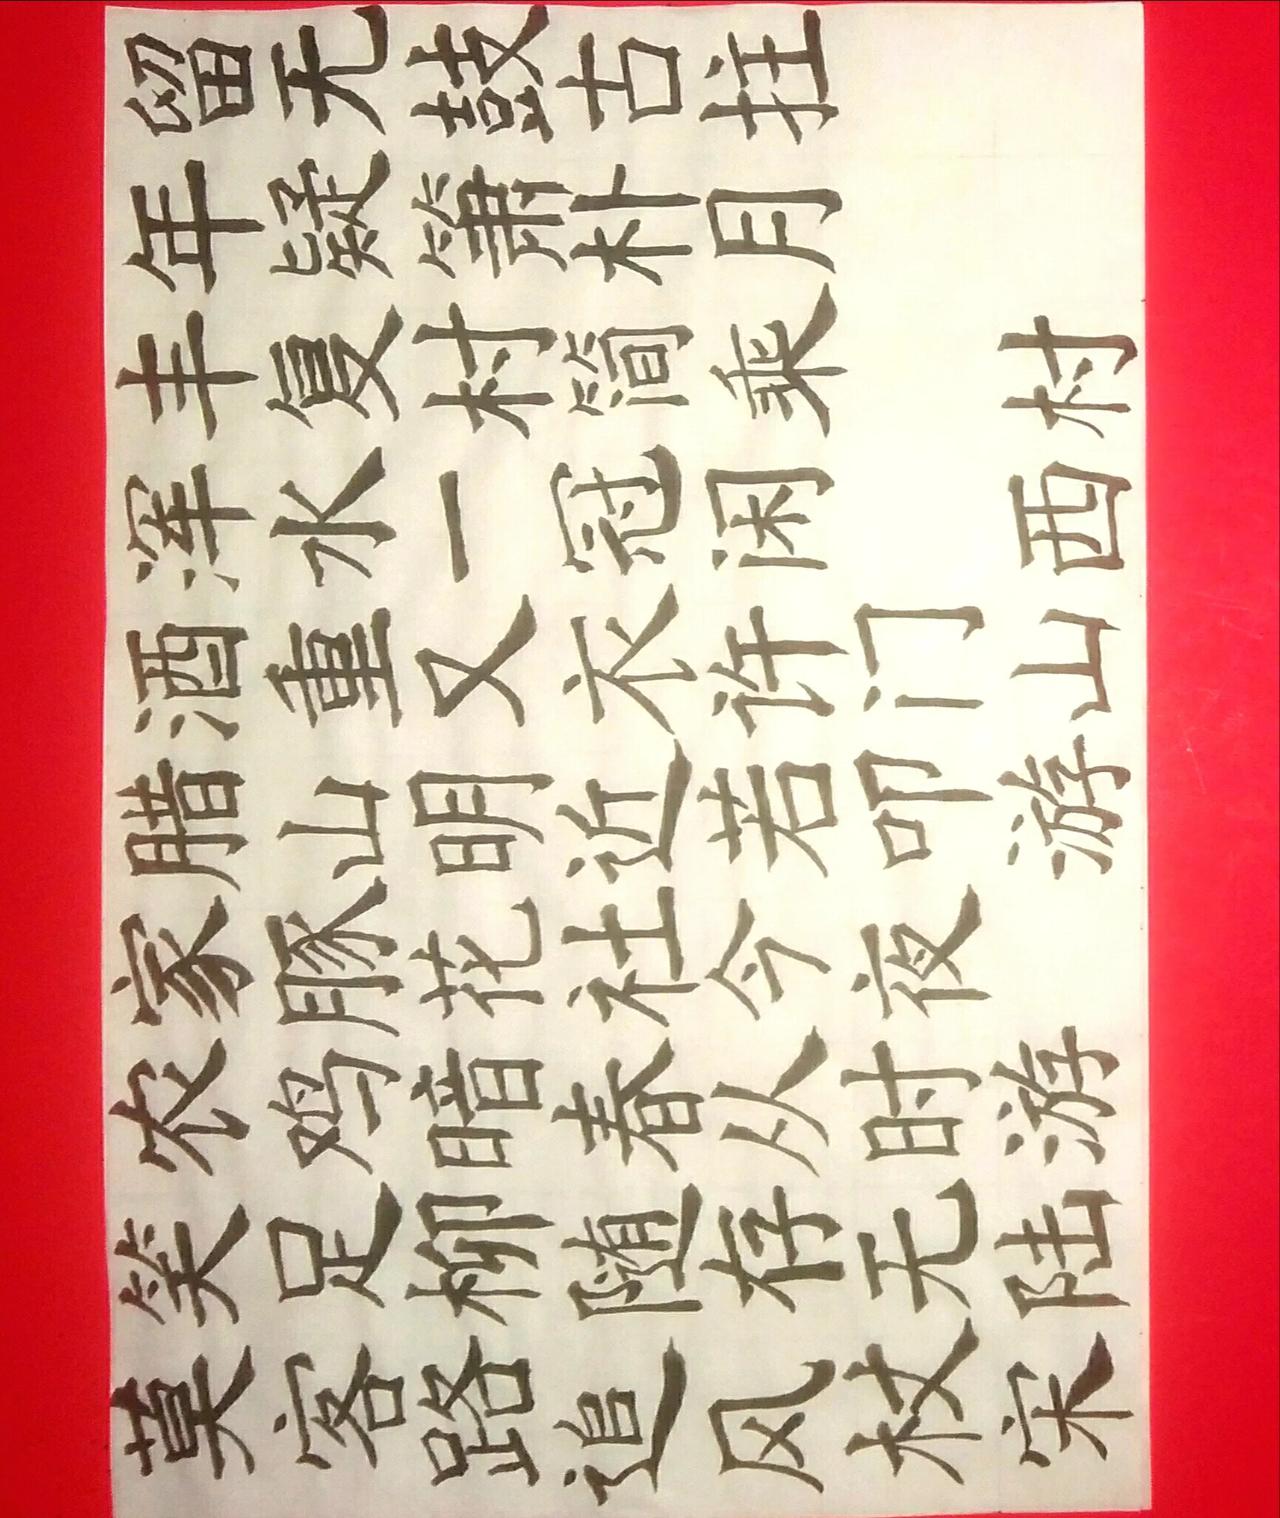 莫笑农家腊酒浑丰年留
客足鸡豚山重水复疑无
路柳暗花明又一村箫鼓
追随春社近衣冠简朴古
风存从今若许闲乘月拄
杖无时夜叩门
宋陆游 游山西村